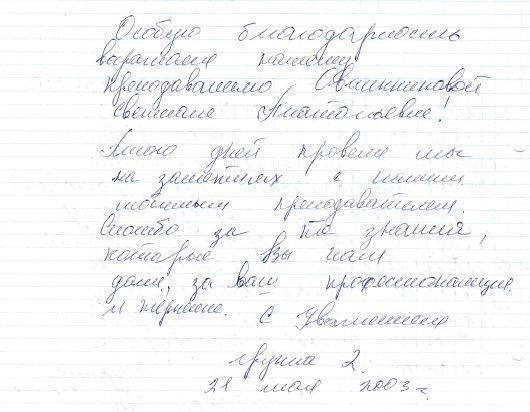 Особую благодарность
выражаем нашему
преподавателю Овчинниковой
Светлане Анатольевне!
Много дней провели мы
на занятиях с нашим
любимым преподавателем.
Спасибо за те знания,
которые Вы нам
дали, за ваш профессионализм
и терпение.
С Уважением
группа 2.
21 мая 2003 г.